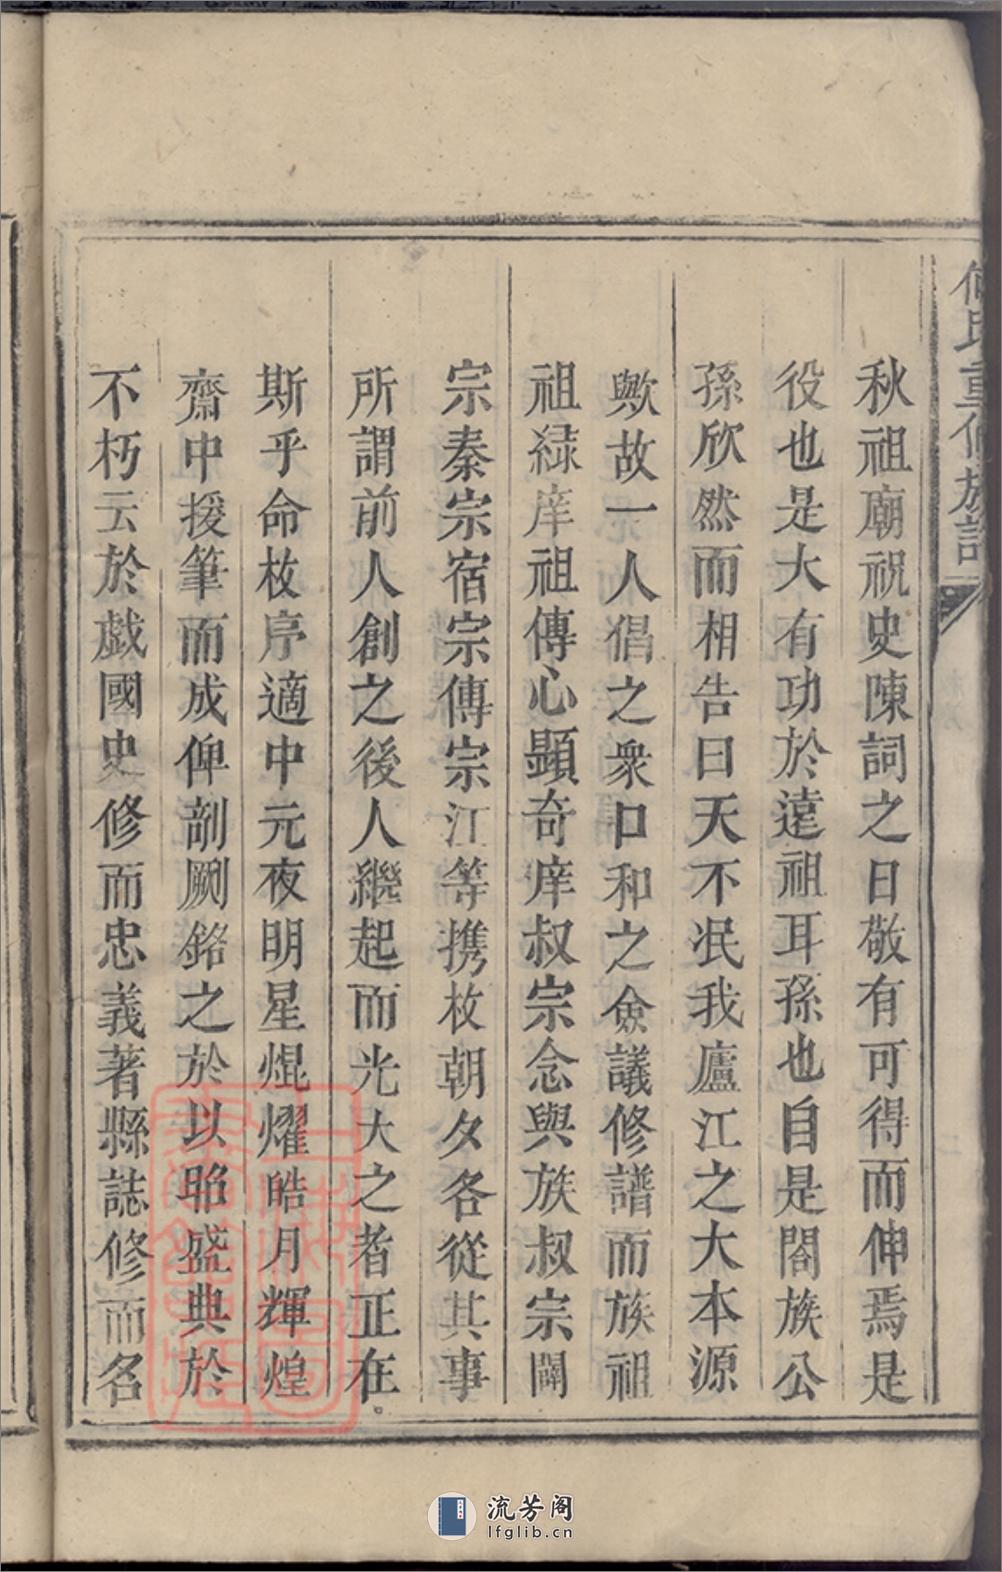 氏重修族譜
秋祖廟祝史陳詞之日敬有可得而伸焉是
役也是大有功於遠祖耳孫也自是閤族公
孫欣然而相告曰天不泯我廬江之大本源
歟故一人倡之衆口和之僉議修譜而族祖
祖緑庠祖傳心顕奇庠叔宗念與族叔宗闢
宗秦宗宿宗傳宗江等携枚朝夕各從其事
所謂前人創之後人繼起而光大之者正在
斯乎命枚序適中元夜明星焜燿皓月輝煌
齋中援筆而成俾剞劂銘之於以昭盛典於
不朽云於戯國史修而忠義著縣誌修而名
上海圖書館藏
流芳阁
lfglib.cn